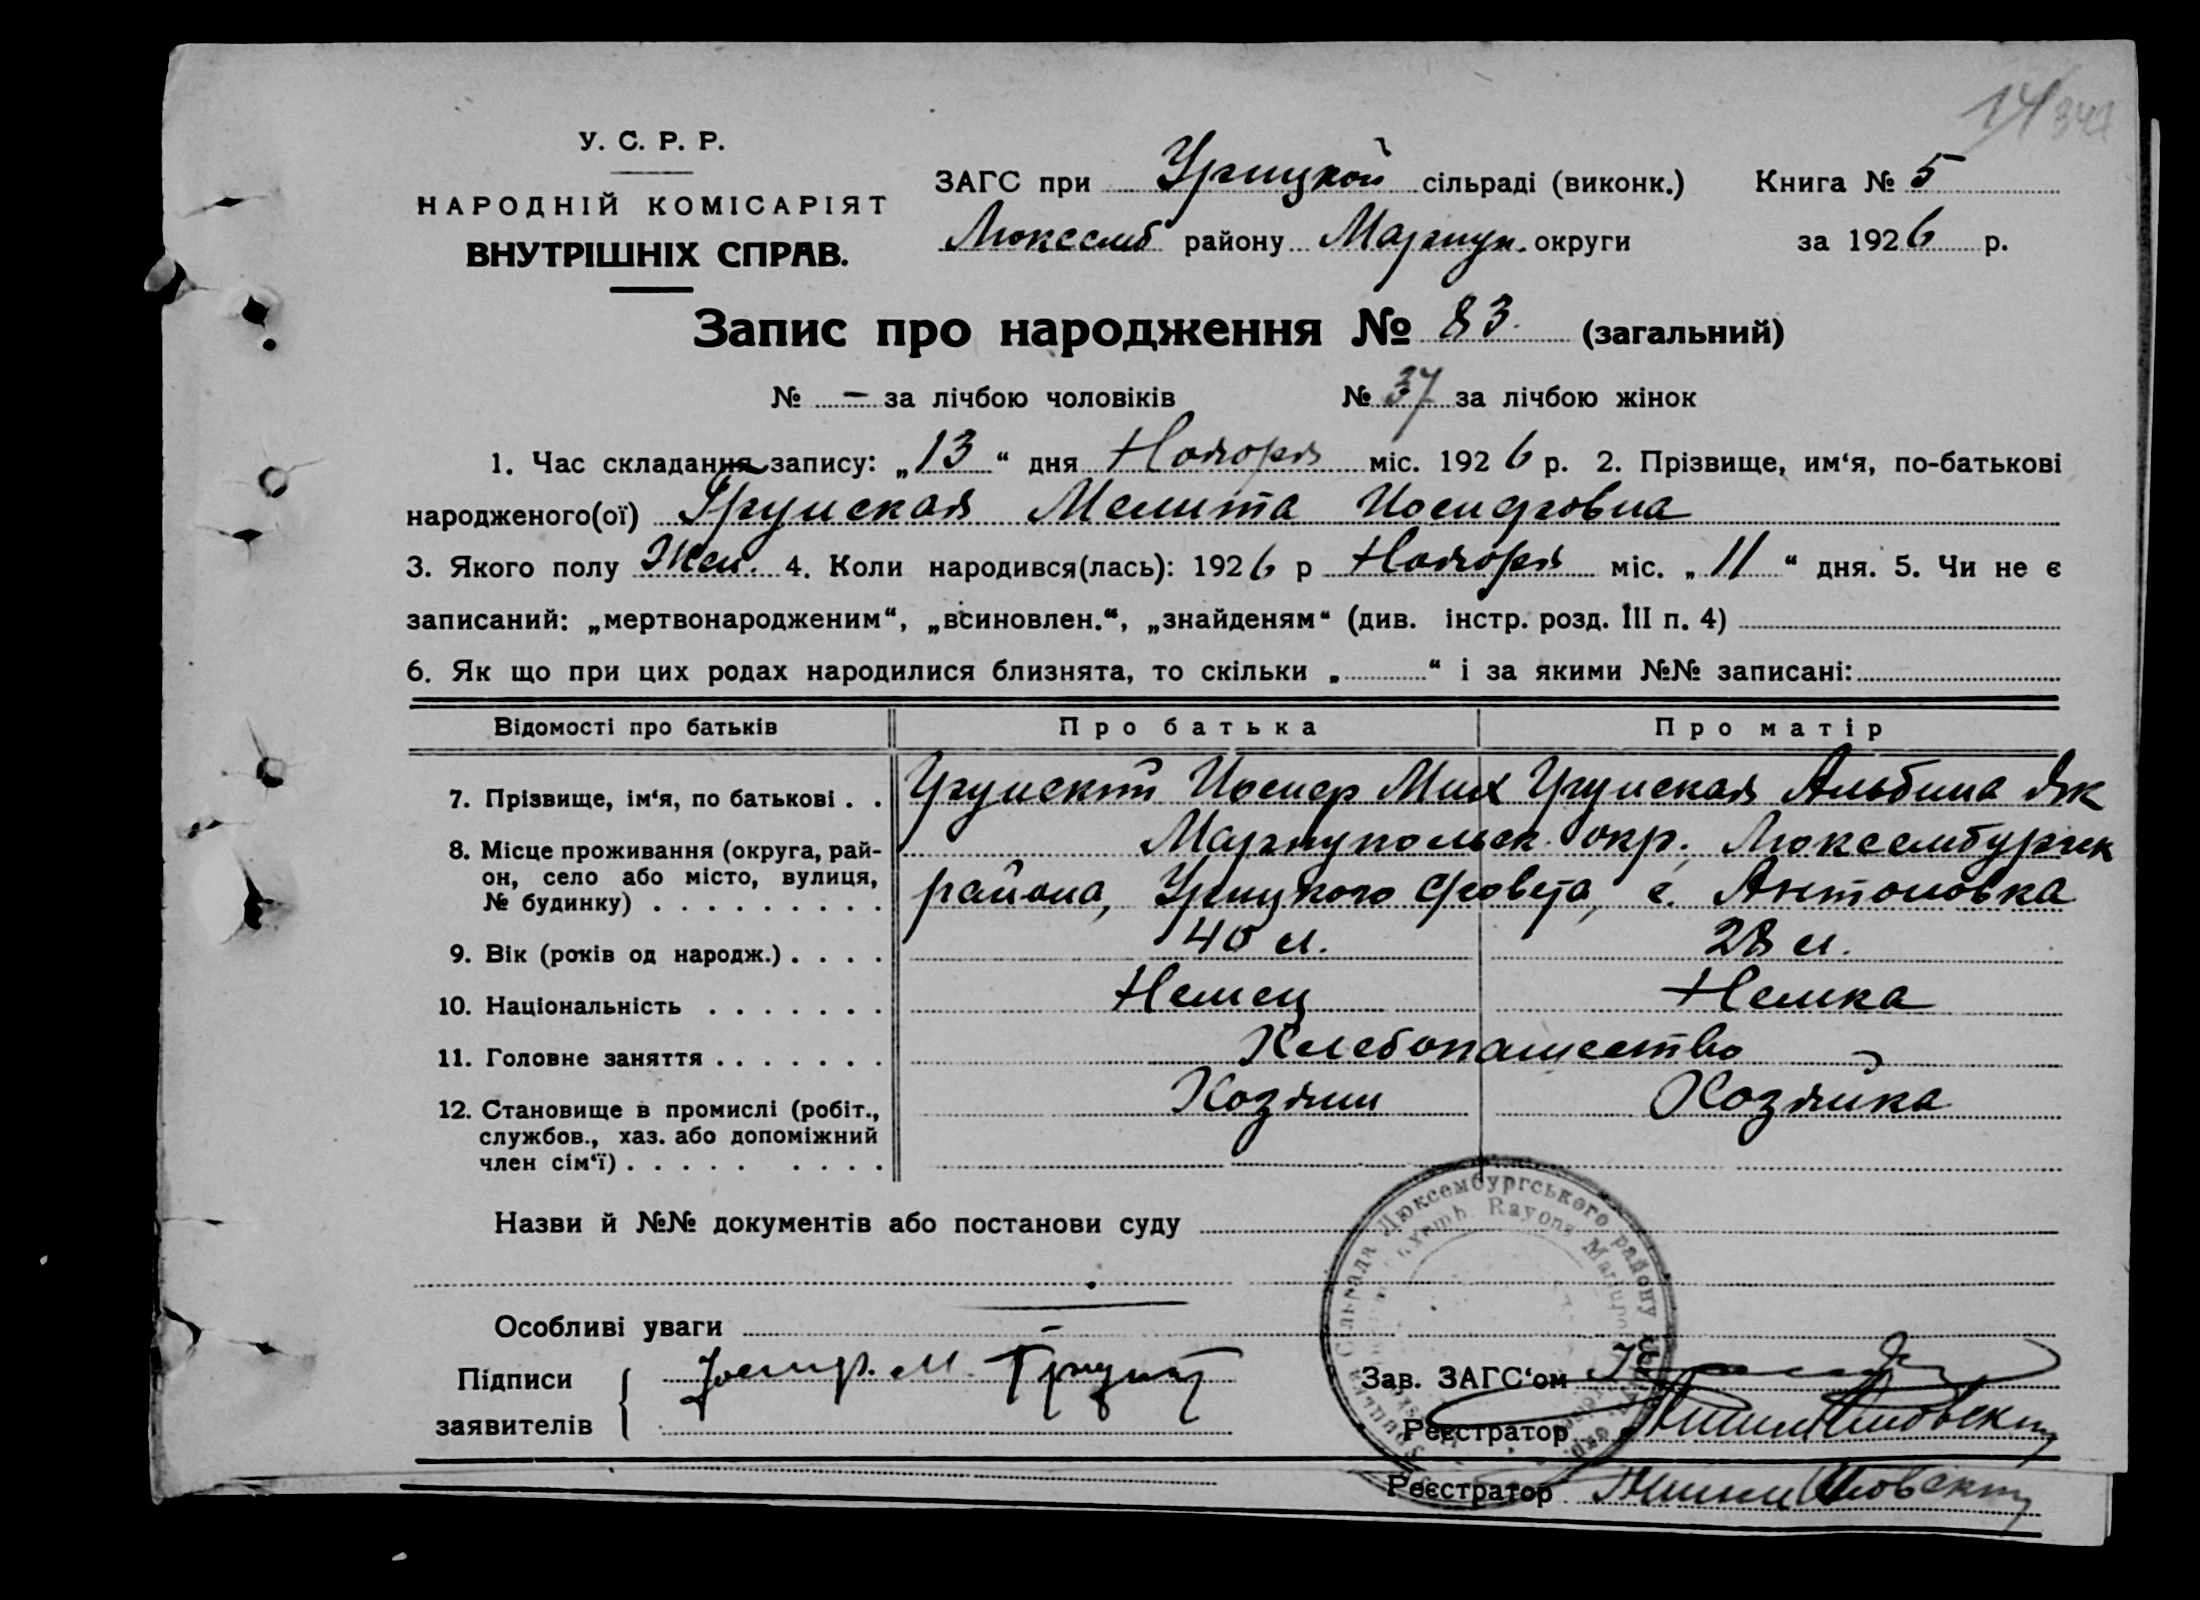 14 341
У. С. Р. Р.
НАРОДНІЙ КОМІСАРІЯТ
ВНУТРІШНІХ СПРАВ.
ЗАГС при Урицкой сільраді (виконк.) Книга № 5
Люксемб району Мариуп. округи за 1926 р.
Запис про народження № 83. (загальний)
№ – за лічбою чоловіків № 37 за лічбою жінок
1. Час складання запису: „13“ дня Ноября міс. 1926 р. 2. Прізвище, им‘я, по-батькові
народженого(ої) Грунская Мелита Иосифовна
3. Якого полу Жен. 4. Коли народився(лась): 1926 р Ноября міс. „11“ дня. 5. Чи не є
записаний: „мертвонародженим“, „всиновлен.“, „знайденям“ (див. інстр. розд. III п. 4)
6. Як що при цих родах народилися близнята, то скільки „ “ і за якими №№ записані:
Відомості про батьків Про батька Про матір
7. Прізвище, ім‘я, по батькові . . Грунский Иосиф Мих Грунская Альбина Як
8. Місце проживання (округа, рай- Мариупольск. окр. Люксембургск
он, село або місто, вулиця, района, Урицкого с/совета, с. Антоновка
№ будинку) . . . . . . . . .
9. Вік (років од народж.) . . . . 40 л. 28 л.
10. Національність . . . . . . . Немец Немка
11. Головне заняття . . . . . . . Хлебопашество
12. Становище в промислі (робіт., Хозяин Хозяйка
службов., хаз. або допоміжний
член сім‘ї) . . . . . . . . .
Назви й №№ документів або постанови суду
Особливі уваги –
Підписи
заявителів
Зав. ЗАГС‘ом
Реєстратор
Реєстратор
Сільрада Люксембургського району
Rayons Mariupol